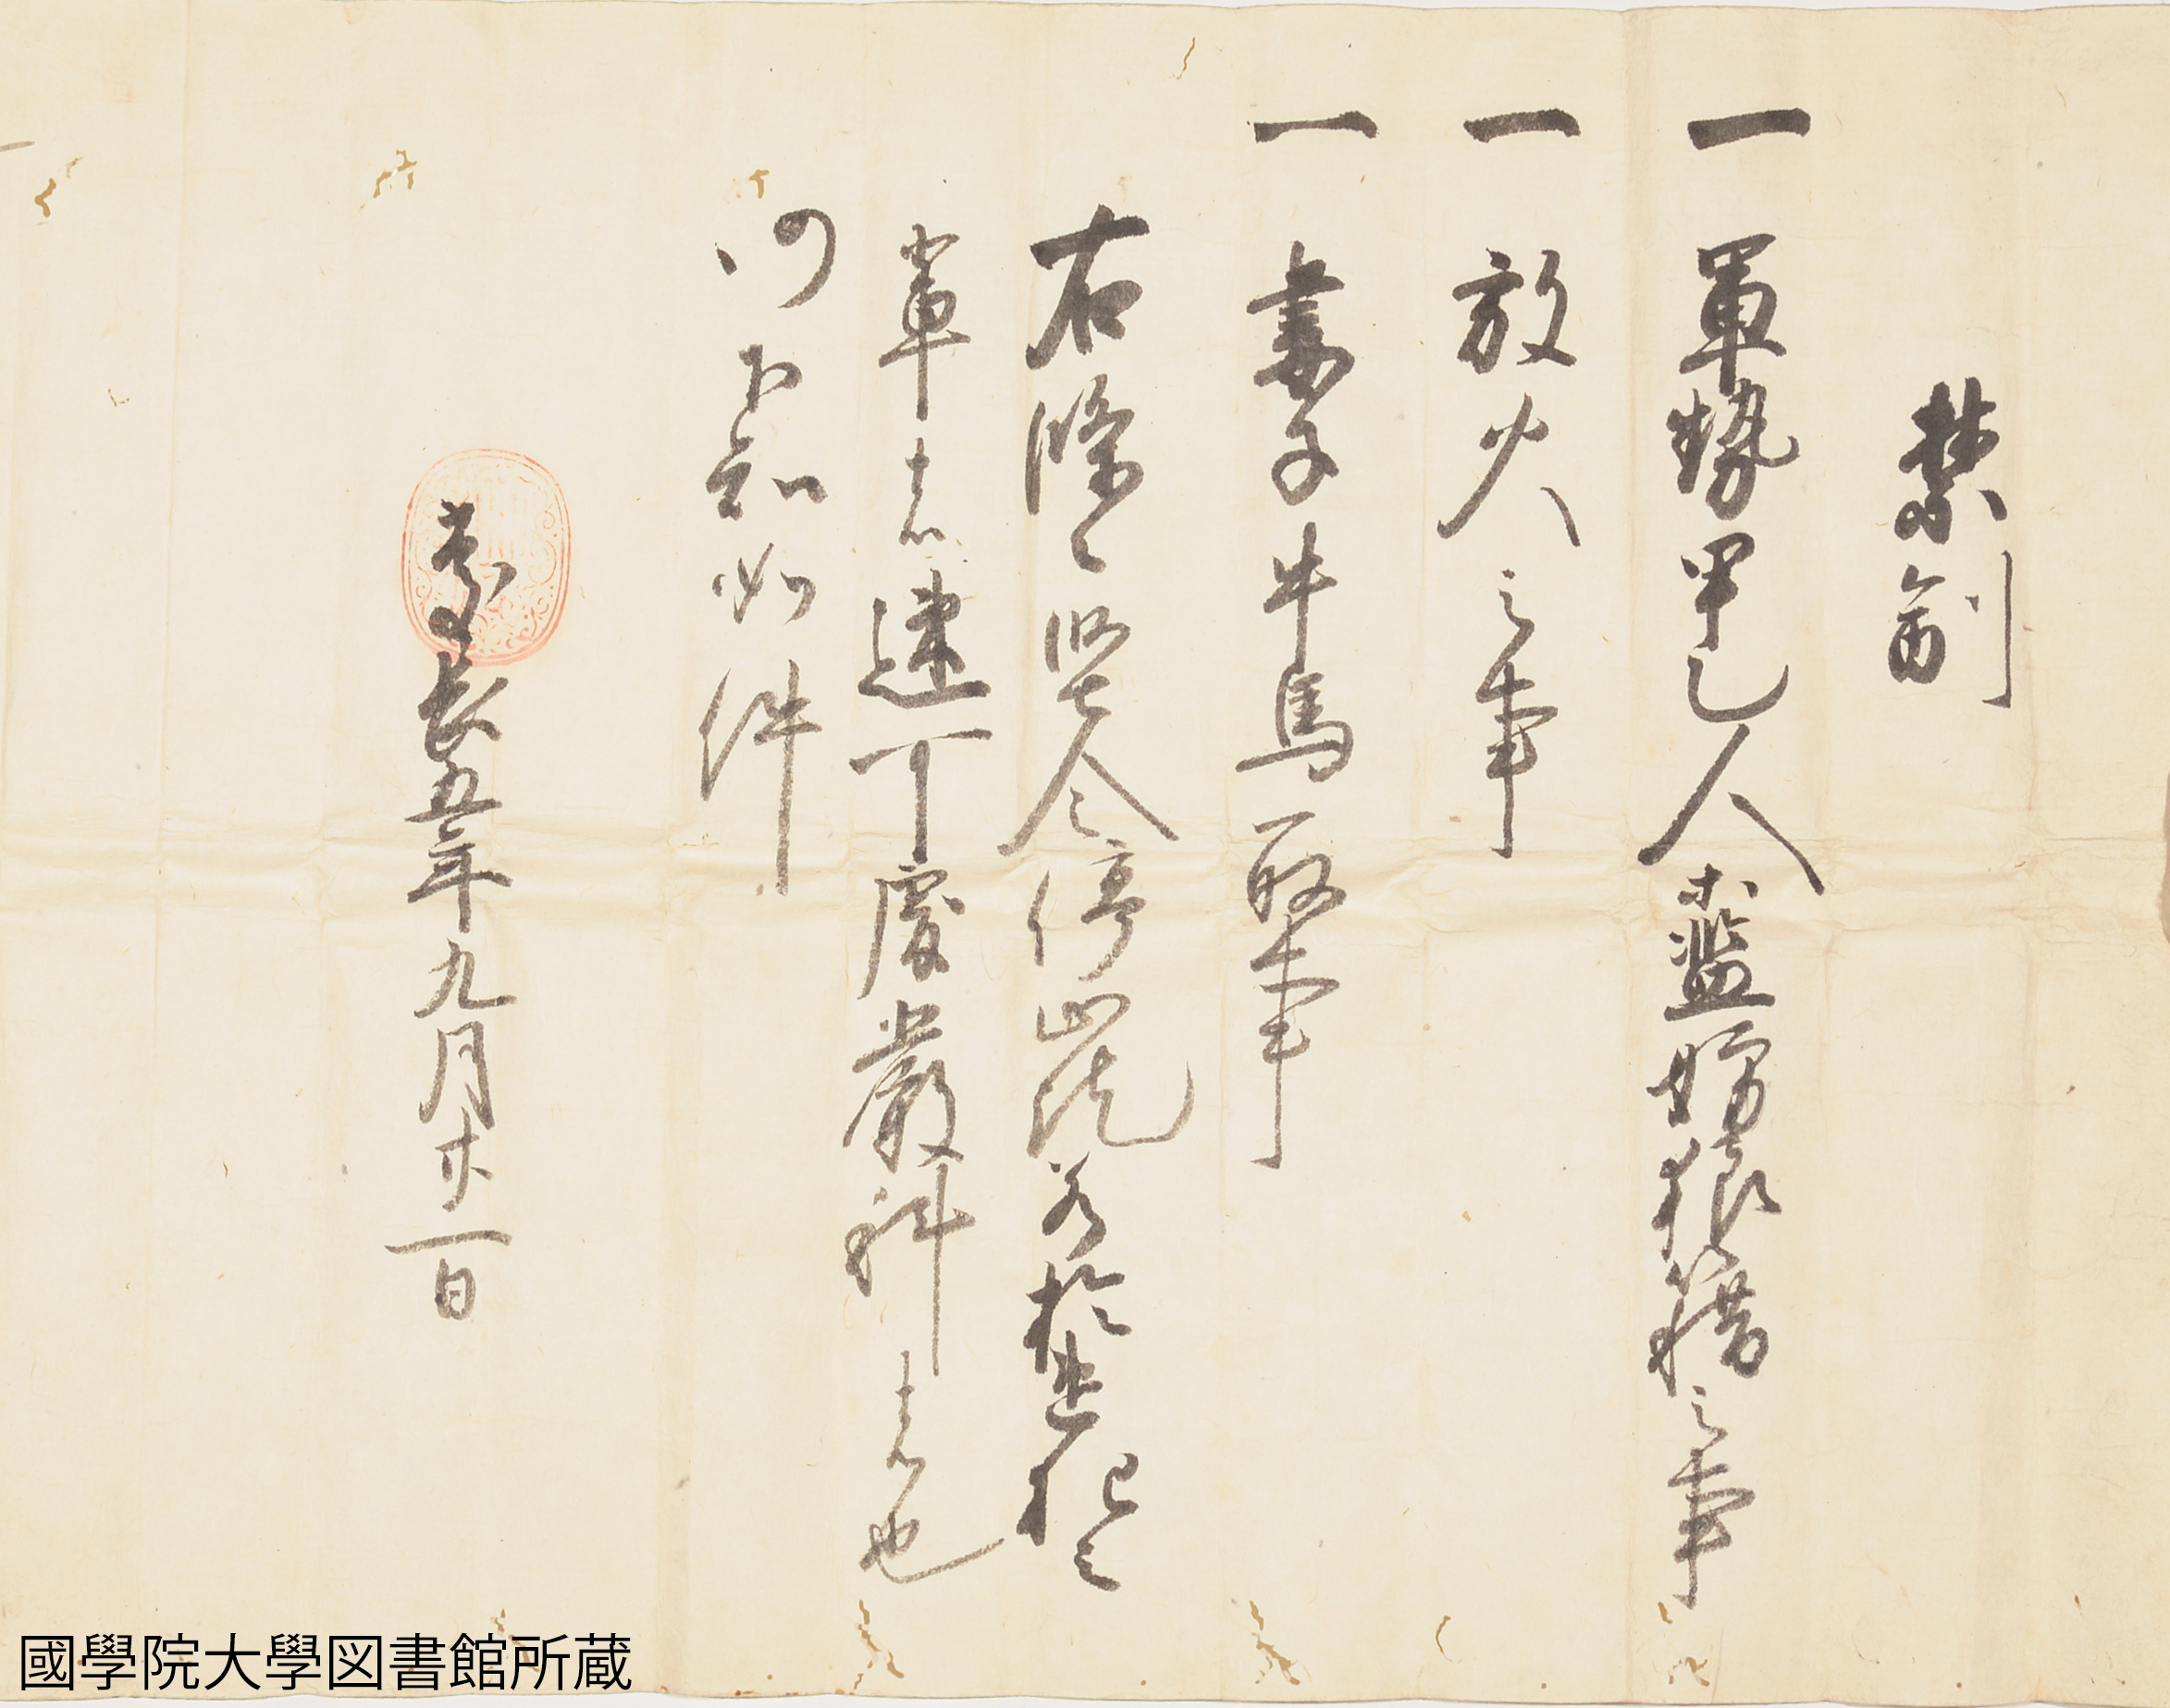 禁制
一 軍勢甲乙人等濫妨狼籍之事
一 放火之事
一 妻子牛馬取事
右條々堅令停止訖若於違犯之
輩者速可處嚴科者也
仍下知如件
慶長五年九月廿一日
國學院大學図書館所蔵